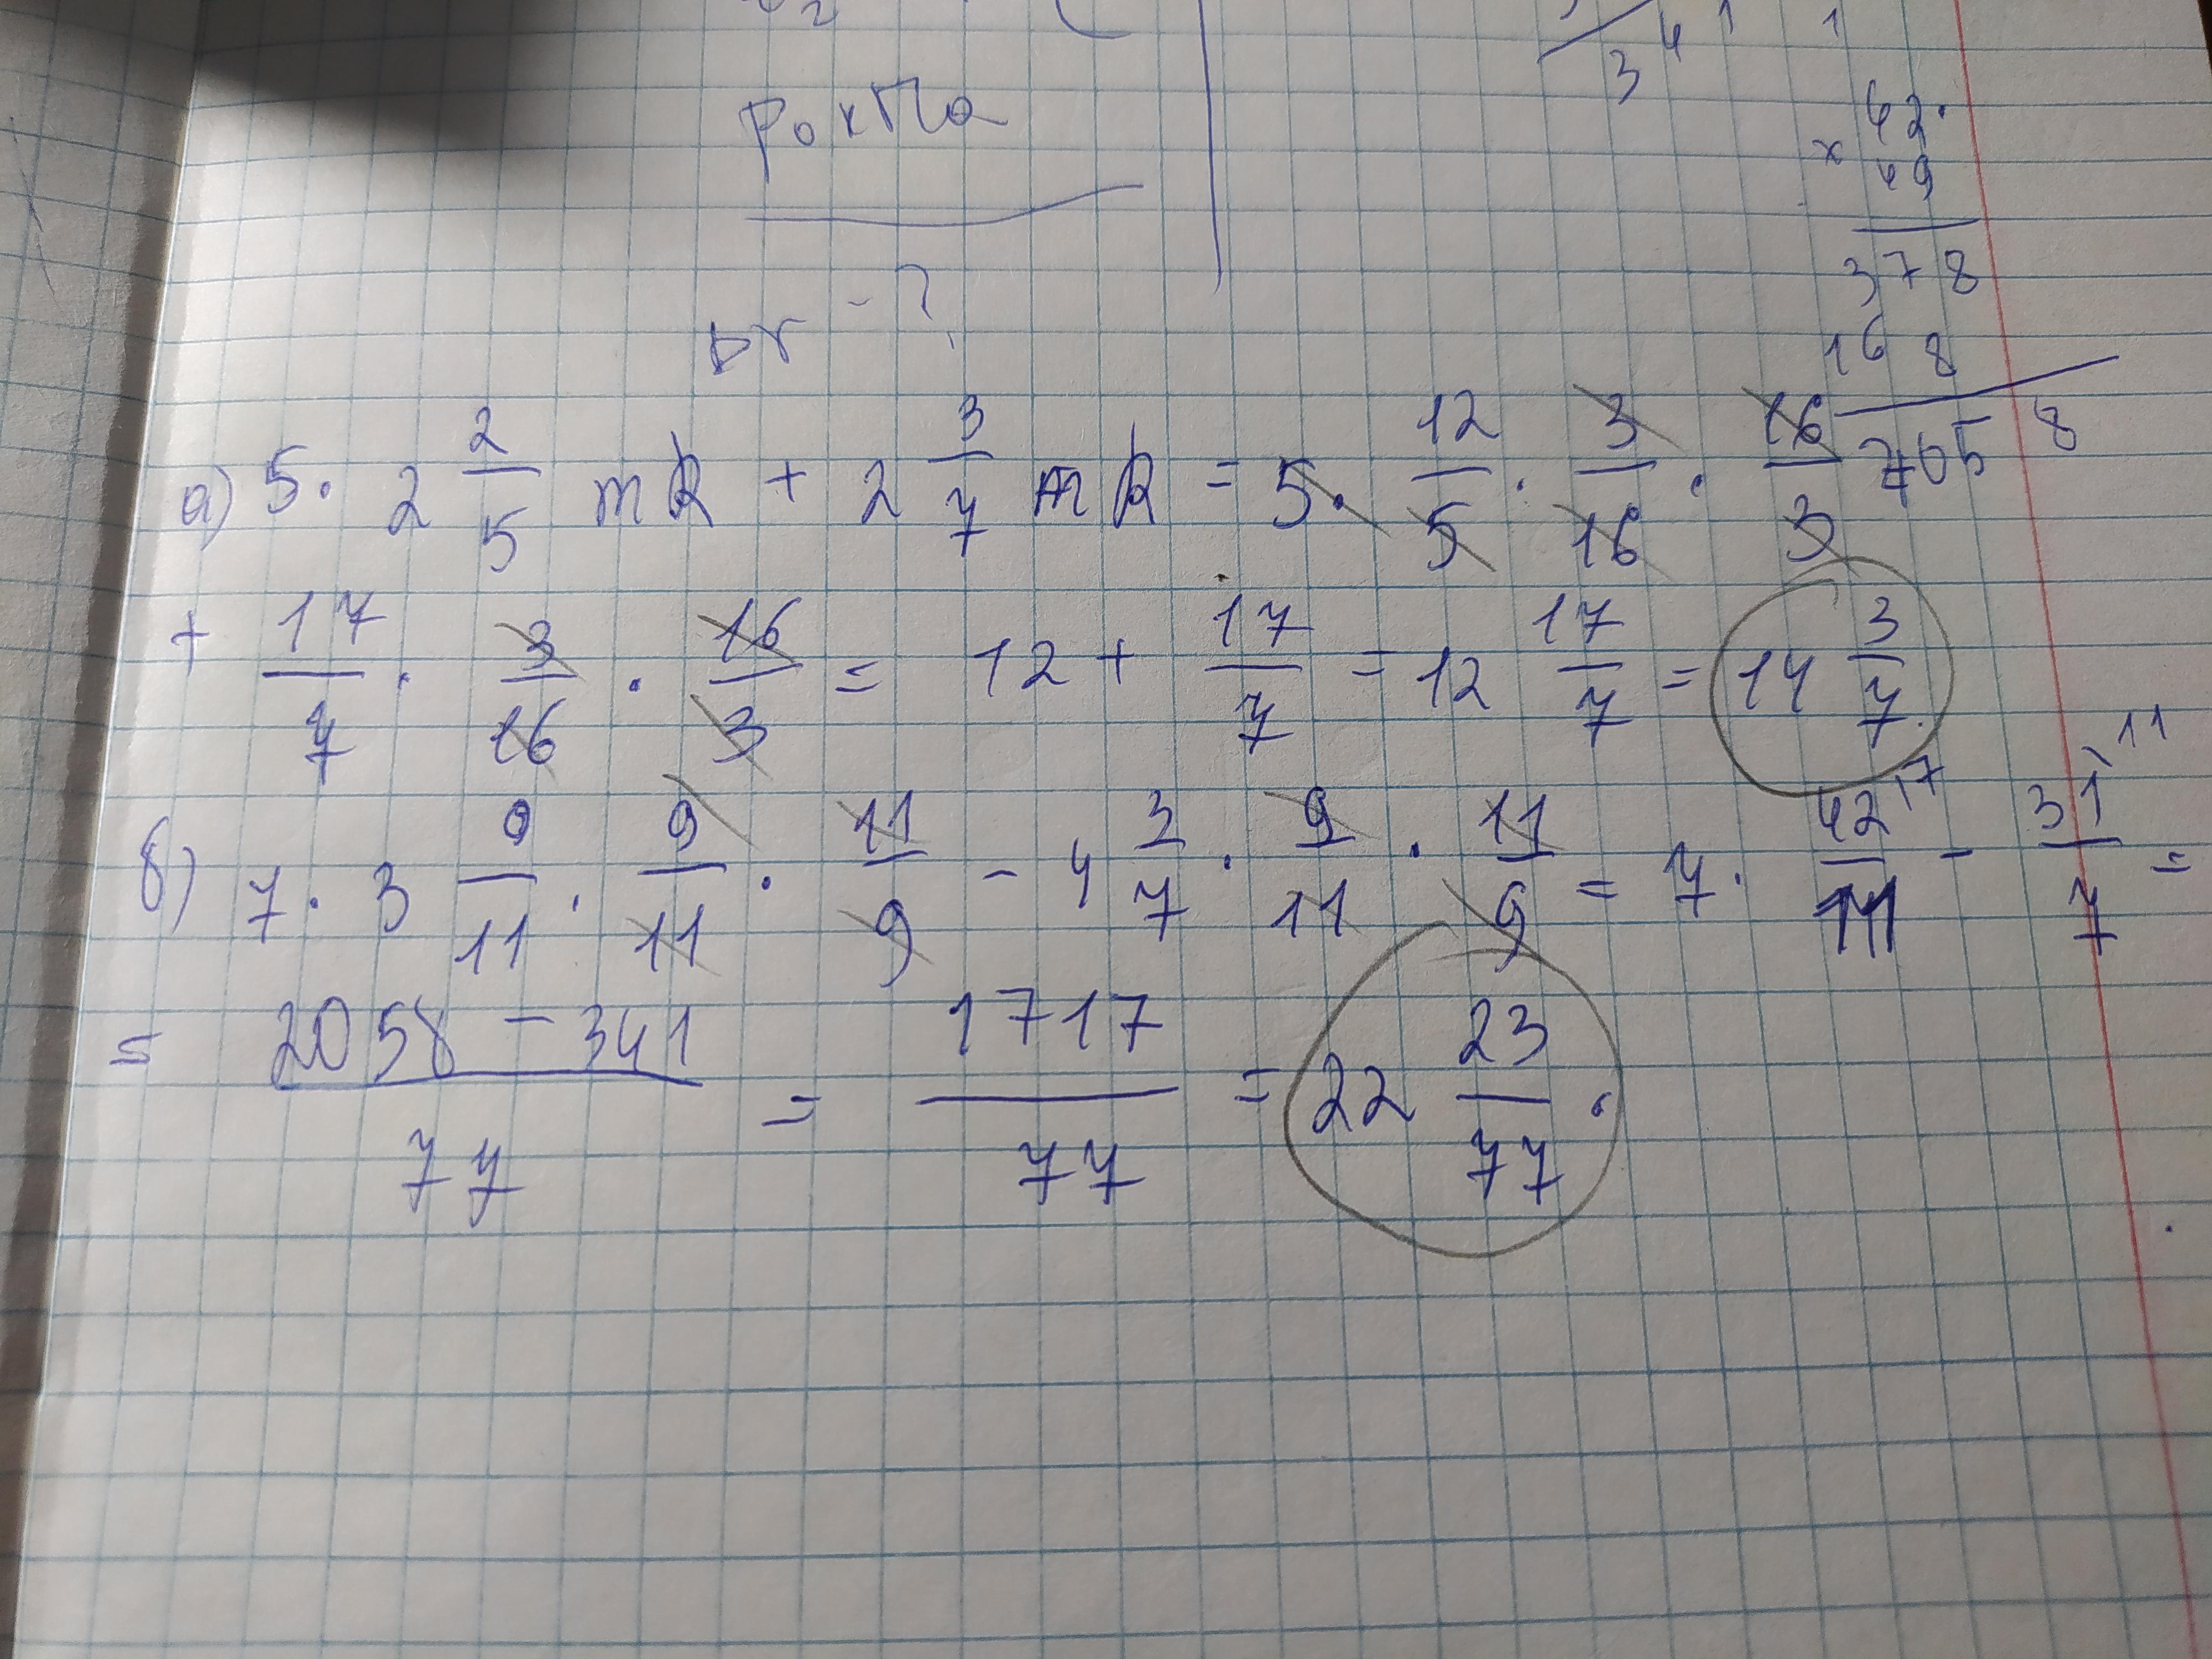 3 4 1 1
42
× 49
378
168
2058
Δr - ?
а) 5 · 2 2/5 mk + 2 3/7 mk = 5 · 12/5 · 3/16 · 16/3
+ 17/7 · 3/16 · 16/3 = 12 + 17/7 = 12 17/7 = 14 3/7
б) 7 · 3 9/11 · 9/11 · 11/9 - 4 3/7 · 9/11 · 11/9 = 7 · 42/11 - 31/7 =
= 2058 - 341/77 = 1717/77 = 22 23/77 .